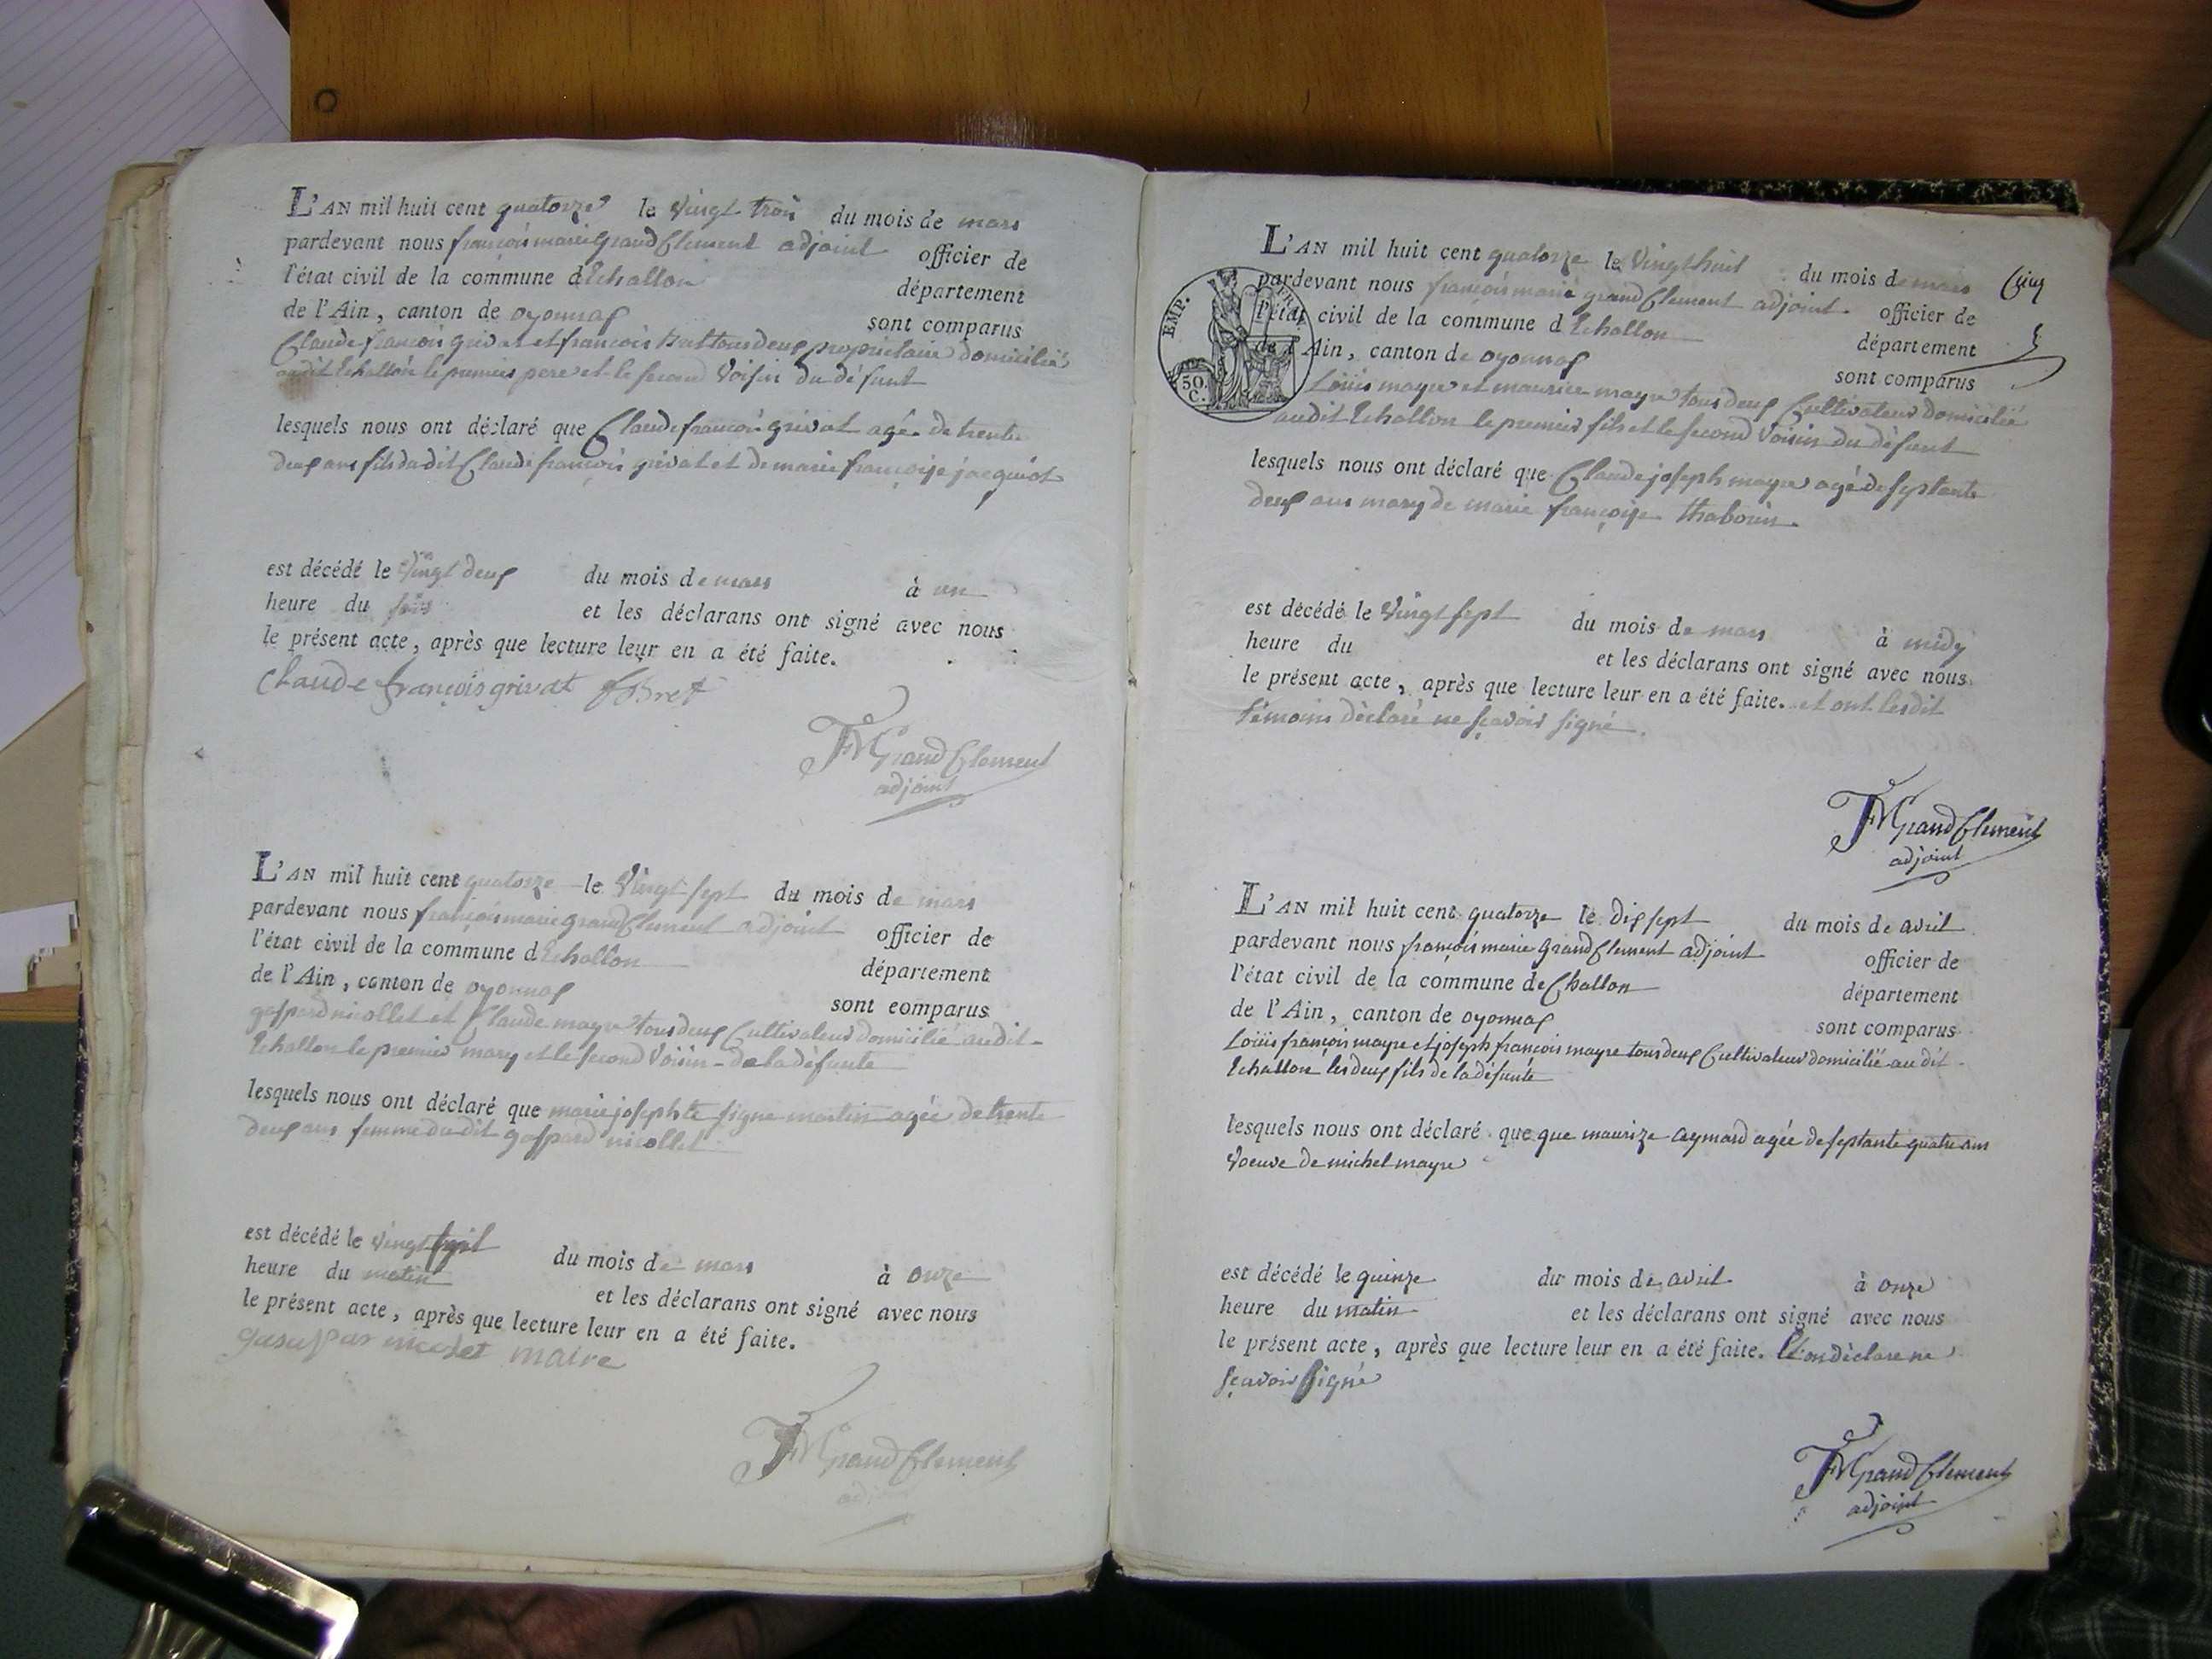 L'AN mil huit cent quatorze le vingt trois du mois de mars
pardevant nous françois marie grand Clement adjoint officier de
l'état civil de la commune d Echallon département
de l'Ain, canton de oyonnax sont comparus
Claude françois grivat et françois bret tous deux propriétaire domicilié
audit Echallon le premier pere et le second voisin du défunt
lesquels nous ont déclaré que Claude françois grivat agé de trente
deux ans fils dudit Claude françois grivat et de marie françoise jacquiot
est décédé le vingt deux du mois de mars à un
heure du soir et les déclarans ont signé avec nous
le présent acte, après que lecture leur en a été faite.
Claude françois grivat f Bret
FM Grand Clement
adjoint
L'AN mil huit cent quatorze le vingt sept du mois de mars
pardevant nous françois marie grand Clement adjoint officier de
l'état civil de la commune d Echallon département
de l'Ain, canton de oyonnax sont comparus
gaspard nicollet et Claude mayre tous deux Cultivateur domicilié audit
Echallon le premier mary et le second voisin de la défunte
lesquels nous ont déclaré que marie josephte signe martin agée de trente
deux ans femme dudit gaspard nicollet
est décédé le vingt du mois de mars à onze
heure du matin et les déclarans ont signé avec nous
le présent acte, après que lecture leur en a été faite.
maire
FM Grand Clement
adjoint
L'AN mil huit cent quatorze le vingt huit du mois de mars
pardevant nous françois marie grand Clement adjoint officier de
l'état civil de la commune d Echallon département
de l'Ain, canton de oyonnax sont comparus
EMP.
50.
C.
Loüis mayre et maurice mayre tous deux Cultivateur domicilié
audit Echallon le premier fils et le second voisin du défunt
lesquels nous ont déclaré que Claude joseph mayre agé de septante
deux ans mary de marie françoise thaborin
est décédé le vingt sept du mois de mars à midy
heure du et les déclarans ont signé avec nous
le présent acte, après que lecture leur en a été faite. et ont lesdit
témoins déclaré ne sçavoir signé
FM Grand Clement
adjoint
L'AN mil huit cent quatorze le dix sept du mois de avril
pardevant nous françois marie grand Clement adjoint officier de
l'état civil de la commune de Challon département
de l'Ain, canton de oyonnax sont comparus
Loüis françois mayre et joseph françois mayre tous deux Cultivateur domicilié au dit
Echallon les deux fils de la défunte
lesquels nous ont déclaré que que maurize aymard agée de septante quatre ans
voeuve de michel mayre
est décédé le quinze du mois de avril à onze
heure du matin et les déclarans ont signé avec nous
le présent acte, après que lecture leur en a été faite. Et on déclare ne
sçavoir signé
FM Grand Clement
adjoint